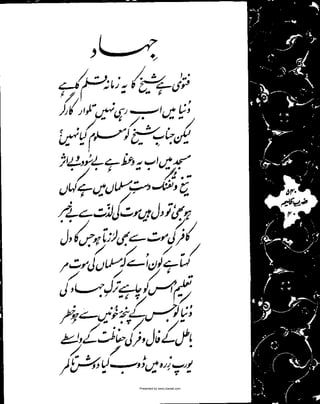 جہاد
فتویٰ ہے شیخ کا یہ زمانہ قلم کا ہے
دُنیا میں اب رہی نہیں تلوار کارگر
لیکن جنابِ شیخ کو معلوم کیا نہیں؟
مسجد میں اب یہ وعظ ہے بے سُود و بے اثر
تیغ و تفنگ دستِ مسلماں میں ہے کہاں
ہو بھی، تو دل ہیں موت کی لذّت سے بے خبر
کافر کی موت سے بھی لرزتا ہو جس کا دل
کہتا ہے کون اُسے کہ مسلماں کی موت مر
تعلیم اُس کو چاہیے ترکِ جہاد کی
دُنیا کو جس کے پنجۂ خونیں سے ہو خطر
باطل کے فال و فر کی حفاظت کے واسطے
یورپ زِرہ میں ڈوب گیا دوش تا کمر
ضربِ کلیم